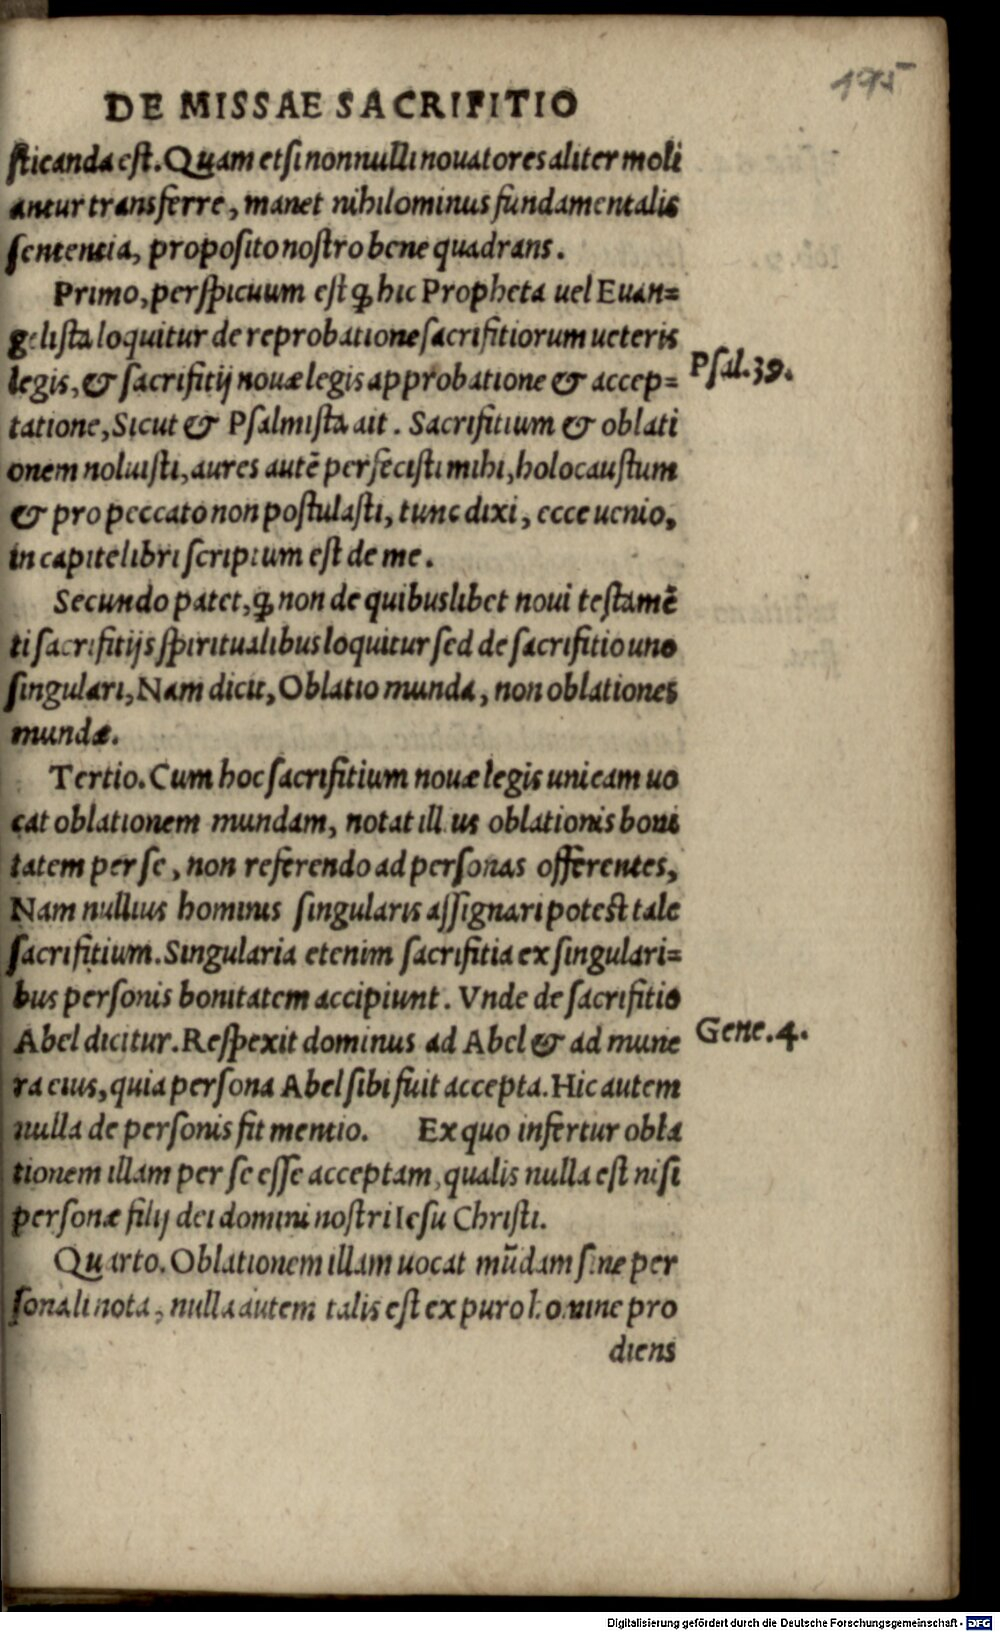 195
DE MISSAE SACRIFITIO
sticanda est. Quam etsi nonnulli nouatores aliter moli
antur transferre, manet nihilominus fundamentalis
sententia, proposito nostro bene quadrans.
Primo, perspicuum est ꝙ hic Propheta uel Euan=
gelista loquitur de reprobatione sacrifitiorum ueteris
legis, & sacrifitij nouæ legis approbatione & accep=
Psal. 39.
tatione, Sicut & Psalmista ait. Sacrifitium & oblati
onem noluisti, aures autē perfecisti mihi, holocaustum
& pro peccato non postulasti, tunc dixi, ecce uenio,
in capite libri scriptum est de me.
Secundo patet, ꝙ non de quibuslibet noui testamē
ti sacrifitijs spiritualibus loquitur sed de sacrifitio uno
singulari, Nam dicit, Oblatio munda, non oblationes
mundæ.
Tertio. Cum hoc sacrifitium nouæ legis unicam uo
cat oblationem mundam, notat illius oblationis boni
tatem per se, non referendo ad personas offerentes,
Nam nullius hominis singularis assignari potest tale
sacrifitium. Singularia etenim sacrifitia ex singulari=
bus personis bonitatem accipiunt. Vnde de sacrifitio
Abel dicitur. Respexit dominus ad Abel & ad mune
Gene. 4.
ra eius, quia persona Abel sibi fuit accepta. Hic autem
nulla de personis fit mentio. Ex quo infertur obla
tionem illam per se esse acceptam, qualis nulla est nisi
personæ filij dei domini nostri Iesu Christi.
Quarto. Oblationem illam uocat mūdam sine per
sonali nota, nulla autem talis est ex puro homine pro
diens
Digitalisierung gefördert durch die Deutsche Forschungsgemeinschaft - DFG